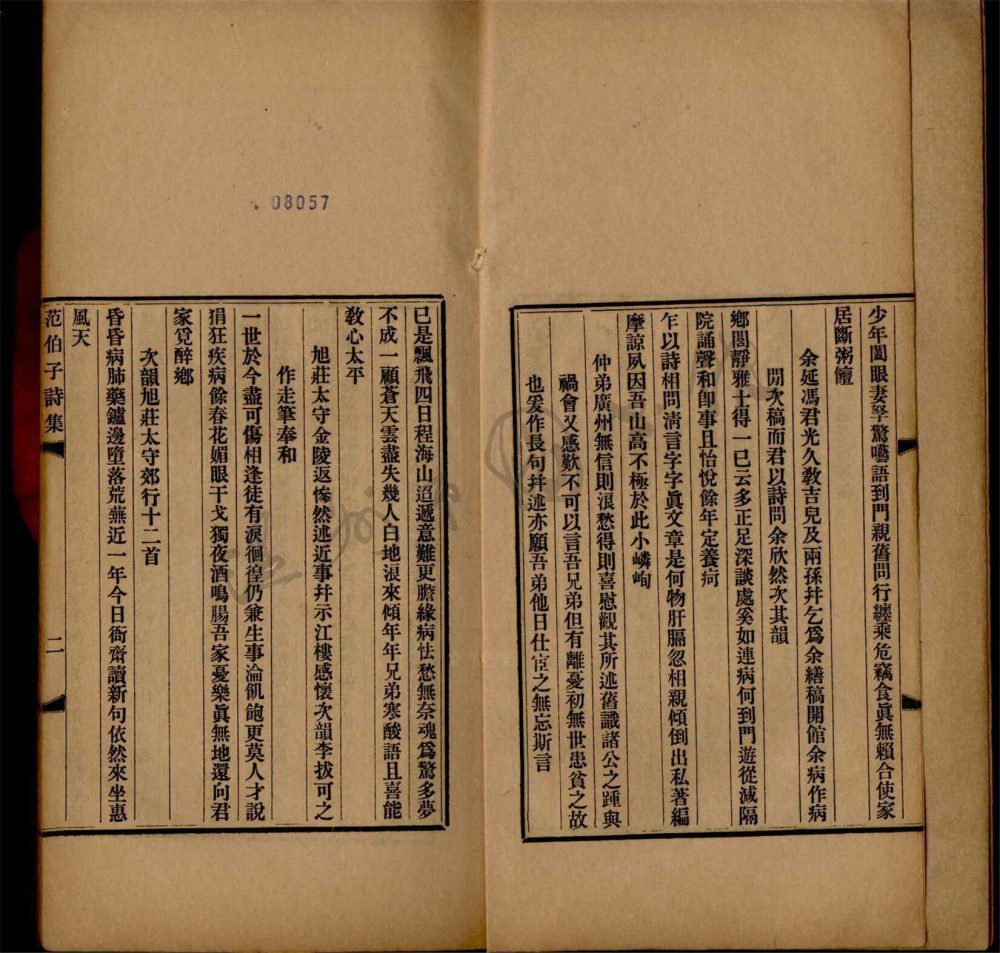 少年闔眼妻孥驚囈語到門親舊問行纏乘危竊食眞無賴合使家
居斷粥饘
余延馮君光久教吉兒及兩孫幷乞爲余繕稿開館余病作病
閒次稿而君以詩問余欣然次其韻
鄉閭靜雅士得一已云多正足深談處奚如連病何到門遊從減隔
院誦聲和卽事且怡悅餘年定養疴
乍以詩相問淸言字字眞文章是何物肝膈忽相親傾倒出私著編
摩諒夙因吾山高不極於此小嶙峋
仲弟廣州無信則淚愁得則喜慰觀其所述舊識諸公之踵與
禍會又感歎不可以言吾兄弟但有離憂初無世患貧之故
也爰作長句幷述亦願吾弟他日仕宦之無忘斯言
已是飄飛四日程海山迢遞意難更膽緣病怯愁無奈魂爲驚多夢
不成一顧蒼天雲盡失幾人白地淚來傾年年兄弟寒酸語且喜能
教心太平
旭莊太守金陵返慘然述近事幷示江樓感懷次韻李拔可之
作走筆奉和
一世於今盡可傷相逢徒有淚徊徨仍兼生事淪飢飽更莫人才說
狷狂疾病餘春花媚眼干戈獨夜酒鳴腸吾家憂樂眞無地還向君
家覓醉鄉
次韻旭莊太守郊行十二首
昏昏病肺藥鑪邊墮落荒蕪近一年今日衙齋讀新句依然來坐惠
風天
范伯子詩集
二
08057